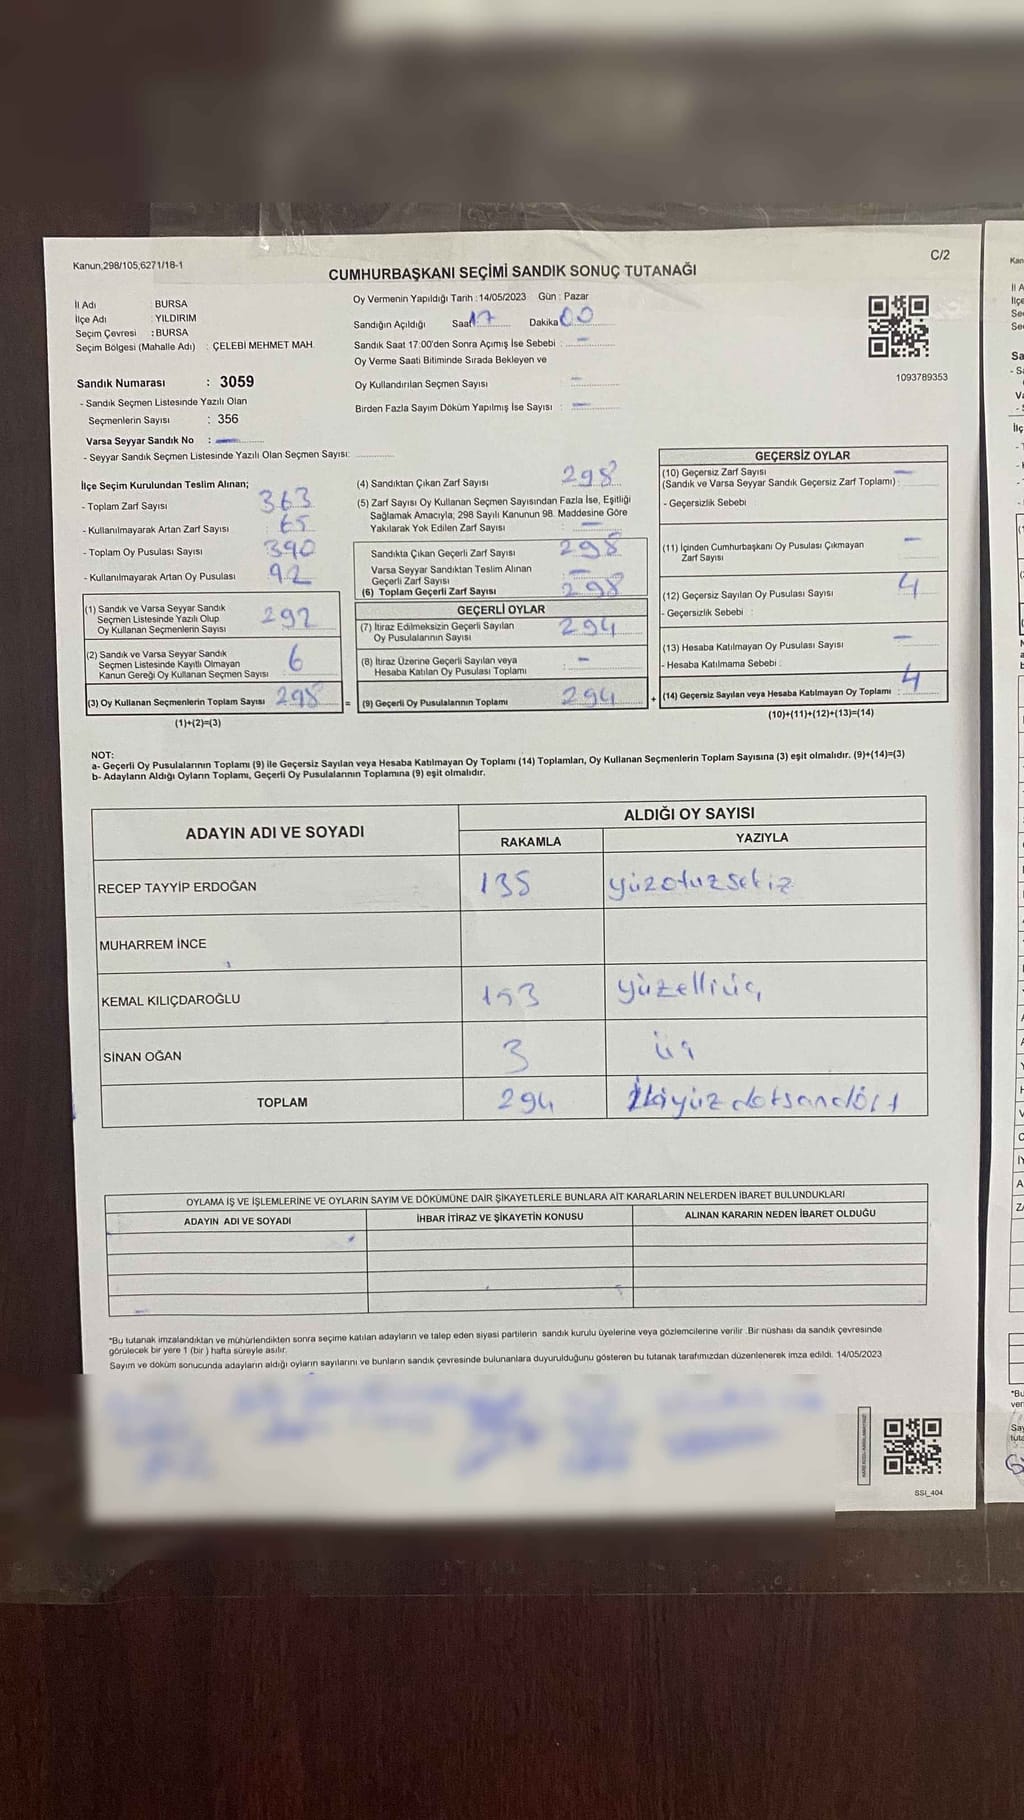 Kanun;298/105,6271/18-1
C/2
CUMHURBAŞKANI SEÇİMİ SANDIK SONUÇ TUTANAĞI
İl Adı : BURSA
İlçe Adı : YILDIRIM
Seçim Çevresi : BURSA
Seçim Bölgesi (Mahalle Adı) : ÇELEBİ MEHMET MAH.
Sandık Numarası : 3059
- Sandık Seçmen Listesinde Yazılı Olan
Seçmenlerin Sayısı : 356
Varsa Seyyar Sandık No : —
- Seyyar Sandık Seçmen Listesinde Yazılı Olan Seçmen Sayısı:
Oy Vermenin Yapıldığı Tarih : 14/05/2023 Gün : Pazar
Sandığın Açıldığı Saat 17 Dakika 00
Sandık Saat 17:00'den Sonra Açımış İse Sebebi : —
Oy Verme Saati Bitiminde Sırada Bekleyen ve
Oy Kullandırılan Seçmen Sayısı —
Birden Fazla Sayım Döküm Yapılmış İse Sayısı : —
1093789353
İlçe Seçim Kurulundan Teslim Alınan;
- Toplam Zarf Sayısı : 363
- Kullanılmayarak Artan Zarf Sayısı : 65
- Toplam Oy Pusulası Sayısı : 390
- Kullanılmayarak Artan Oy Pusulası : 92
(1) Sandık ve Varsa Seyyar Sandık
Seçmen Listesinde Yazılı Olup
Oy Kullanan Seçmenlerin Sayısı 292
(2) Sandık ve Varsa Seyyar Sandık
Seçmen Listesinde Kayıtlı Olmayan
Kanun Gereği Oy Kullanan Seçmen Sayısı : 6
(3) Oy Kullanan Seçmenlerin Toplam Sayısı 298 =
(1)+(2)=(3)
(4) Sandıktan Çıkan Zarf Sayısı 298
(5) Zarf Sayısı Oy Kullanan Seçmen Sayısından Fazla İse, Eşitliği
Sağlamak Amacıyla; 298 Sayılı Kanunun 98. Maddesine Göre
Yakılarak Yok Edilen Zarf Sayısı : —
Sandıkta Çıkan Geçerli Zarf Sayısı 298
Varsa Seyyar Sandıktan Teslim Alınan
Geçerli Zarf Sayısı —
(6) Toplam Geçerli Zarf Sayısı 298
GEÇERLİ OYLAR
(7) İtiraz Edilmeksizin Geçerli Sayılan
Oy Pusulalarının Sayısı 294
(8) İtiraz Üzerine Geçerli Sayılan veya
Hesaba Katılan Oy Pusulaları Toplamı : —
(9) Geçerli Oy Pusulalarının Toplamı 294 +
GEÇERSİZ OYLAR
(10) Geçersiz Zarf Sayısı
(Sandık ve Varsa Seyyar Sandık Geçersiz Zarf Toplamı) : —
- Geçersizlik Sebebi
(11) İçinden Cumhurbaşkanı Oy Pusulası Çıkmayan
Zarf Sayısı —
(12) Geçersiz Sayılan Oy Pusulası Sayısı 4
- Geçersizlik Sebebi :
(13) Hesaba Katılmayan Oy Pusulası Sayısı —
- Hesaba Katılmama Sebebi :
(14) Geçersiz Sayılan veya Hesaba Katılmayan Oy Toplamı : 4
(10)+(11)+(12)+(13)=(14)
NOT:
a- Geçerli Oy Pusulalarının Toplamı (9) ile Geçersiz Sayılan veya Hesaba Katılmayan Oy Toplamı (14) Toplamları, Oy Kullanan Seçmenlerin Toplam Sayısına (3) eşit olmalıdır. (9)+(14)=(3)
b- Adayların Aldığı Oyların Toplamı, Geçerli Oy Pusulalarının Toplamına (9) eşit olmalıdır.
ADAYIN ADI VE SOYADI
ALDIĞI OY SAYISI
RAKAMLA YAZIYLA
RECEP TAYYİP ERDOĞAN 138 yüzotuzsekiz
MUHARREM İNCE
KEMAL KILIÇDAROĞLU 153 yüzelliüç
SİNAN OĞAN 3 üç
TOPLAM 294 İkiyüz doksandört
OYLAMA İŞ VE İŞLEMLERİNE VE OYLARIN SAYIM VE DÖKÜMÜNE DAİR ŞİKAYETLERLE BUNLARA AİT KARARLARIN NELERDEN İBARET BULUNDUKLARI
ADAYIN ADI VE SOYADI İHBAR İTİRAZ VE ŞİKAYETİN KONUSU ALINAN KARARIN NEDEN İBARET OLDUĞU
*Bu tutanak imzalandıktan ve mühürlendikten sonra seçime katılan adayların ve talep eden siyasi partilerin sandık kurulu üyelerine veya gözlemcilerine verilir .Bir nüshası da sandık çevresinde
görülecek bir yere 1 (bir ) hafta süreyle asılır.
Sayım ve döküm sonucunda adayların aldığı oyların sayılarını ve bunların sandık çevresinde bulunanlara duyurulduğunu gösteren bu tutanak tarafımızdan düzenlenerek imza edildi. 14/05/2023
SSİ_404